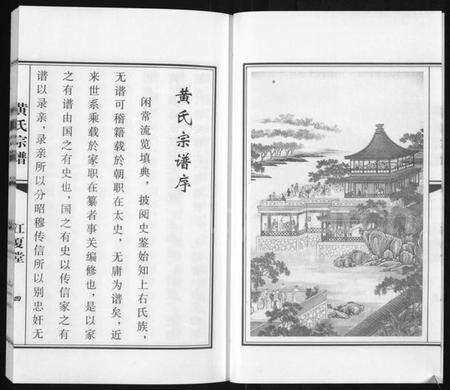 黄氏宗谱序
闲常流览填典，披阅史鉴始知上右氏族，
无谱可稽籍载於朝职在太史，无庸为谱矣，近
来世系乘载於家职在纂者事关编修也，是以家
之有谱由国之有史也，国之有史以传信家之有
谱以录亲，录亲所以分昭穆传信所以别忠奸无
黄氏宗谱
江夏堂
四